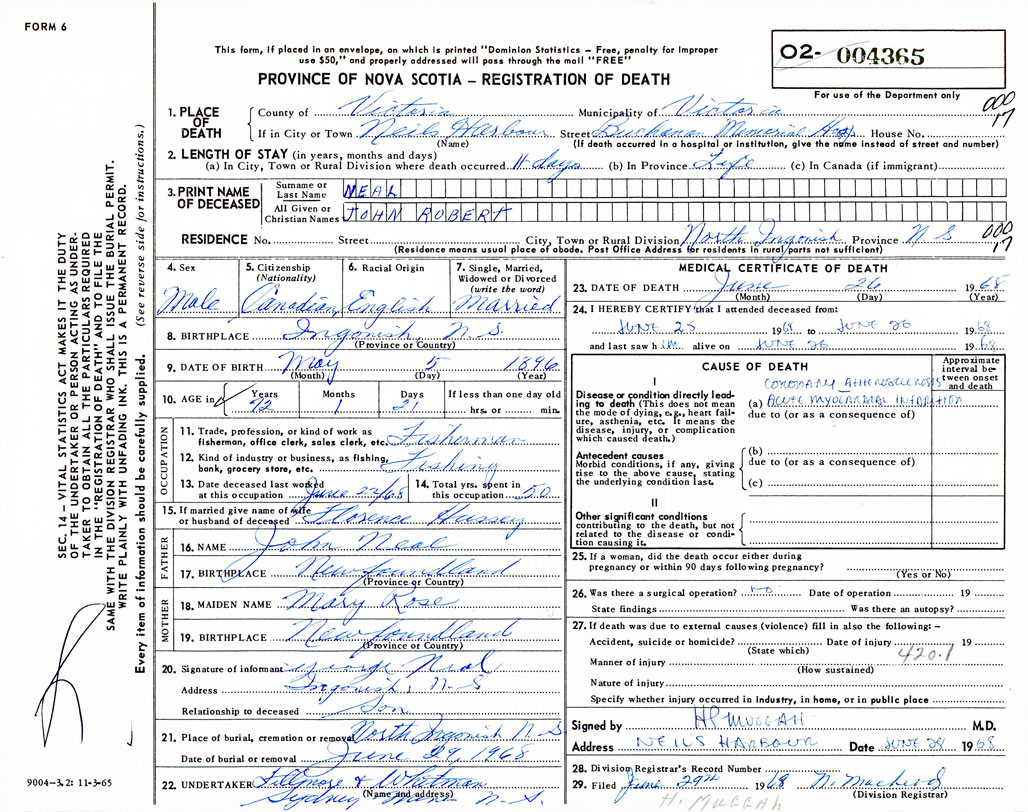 FORM 6
This form, if placed in an envelope, on which is printed "Dominion Statistics – Free, penalty for improper
use $50," and properly addressed will pass through the mail "FREE"
PROVINCE OF NOVA SCOTIA – REGISTRATION OF DEATH
02- 004365
For use of the Department only
000
17
1. PLACE OF DEATH County of Victoria Municipality of Victoria
If in City or Town Neils Harbour Street Buchanan Memorial Hosp. House No.
(Name) (If death occurred in a hospital or institution, give the name instead of street and number)
2. LENGTH OF STAY (in years, months and days)
(a) In City, Town or Rural Division where death occurred 11 days (b) In Province Life (c) In Canada (if immigrant)
3. PRINT NAME OF DECEASED
Surname or Last Name NEAL
All Given or Christian Names JOHN ROBERT
RESIDENCE No. Street City, Town or Rural Division North Ingonish Province N S
(Residence means usual place of abode. Post Office Address for residents in rural parts not sufficient)
000
17
4. Sex Male
5. Citizenship (Nationality) Canadian
6. Racial Origin English
7. Single, Married, Widowed or Divorced (write the word) Married
8. BIRTHPLACE Ingonish N.S.
(Province or Country)
9. DATE OF BIRTH May 5 1896
(Month) (Day) (Year)
10. AGE in Years Months Days If less than one day old
72 1 21 hrs. or min.
OCCUPATION
11. Trade, profession, or kind of work as
fisherman, office clerk, sales clerk, etc. Fisherman
12. Kind of industry or business, as fishing,
bank, grocery store, etc. Fishing
13. Date deceased last worked
at this occupation June 22/68
14. Total yrs. spent in
this occupation 50
15. If married give name of wife
or husband of deceased Florence Hussey
FATHER
16. NAME John Neal
17. BIRTHPLACE Newfoundland
(Province or Country)
MOTHER
18. MAIDEN NAME Mary Rose
19. BIRTHPLACE Newfoundland
(Province or Country)
20. Signature of informant George Neal
Address Ingonish, N-S
Relationship to deceased Son
21. Place of burial, cremation or removal North Ingonish N S
Date of burial or removal June 29, 1968
22. UNDERTAKER Fillmore & Whitman
(Name and address)
Sydney Mines N-S.
MEDICAL CERTIFICATE OF DEATH
23. DATE OF DEATH June 26 1968
(Month) (Day) (Year)
24. I HEREBY CERTIFY that I attended deceased from:
JUNE 25 1968 to JUNE 26 1968
and last saw him alive on JUNE 26 1968
CAUSE OF DEATH
Approximate interval between onset and death
I
CORONARY ATHEROSCLEROSIS
Disease or condition directly leading to death (This does not mean the mode of dying, e.g., heart failure, asthenia, etc. It means the disease, injury, or complication which caused death.)
(a) ACUTE MYOCARDIAL INFARCTION
due to (or as a consequence of)
Antecedent causes
Morbid conditions, if any, giving rise to the above cause, stating the underlying condition last.
(b)
due to (or as a consequence of)
(c)
II
Other significant conditions
contributing to the death, but not related to the disease or condition causing it.
25. If a woman, did the death occur either during
pregnancy or within 90 days following pregnancy?
(Yes or No)
26. Was there a surgical operation? no Date of operation 19
State findings Was there an autopsy?
27. If death was due to external causes (violence) fill in also the following: –
Accident, suicide or homicide? Date of injury 19
(State which)
420.1
Manner of injury
(How sustained)
Nature of injury
Specify whether injury occurred in industry, in home, or in public place
Signed by HP MUGGAH M.D.
Address NEILS HARBOUR Date JUNE 28 1968
28. Division Registrar's Record Number
29. Filed June 29th 1968 N. MacLeod
(Division Registrar)
H. MUGGAH
SEC. 14 – VITAL STATISTICS ACT MAKES IT THE DUTY
OF THE UNDERTAKER OR PERSON ACTING AS UNDER-
TAKER TO OBTAIN ALL THE PARTICULARS REQUIRED
IN THE "REGISTRATION OF DEATH" AND TO FILE THE
SAME WITH THE DIVISION REGISTRAR WHO SHALL ISSUE THE BURIAL PERMIT.
WRITE PLAINLY WITH UNFADING INK. THIS IS A PERMANENT RECORD.
Every item of information should be carefully supplied. (See reverse side for instructions.)
9004-3.2: 11-3-65